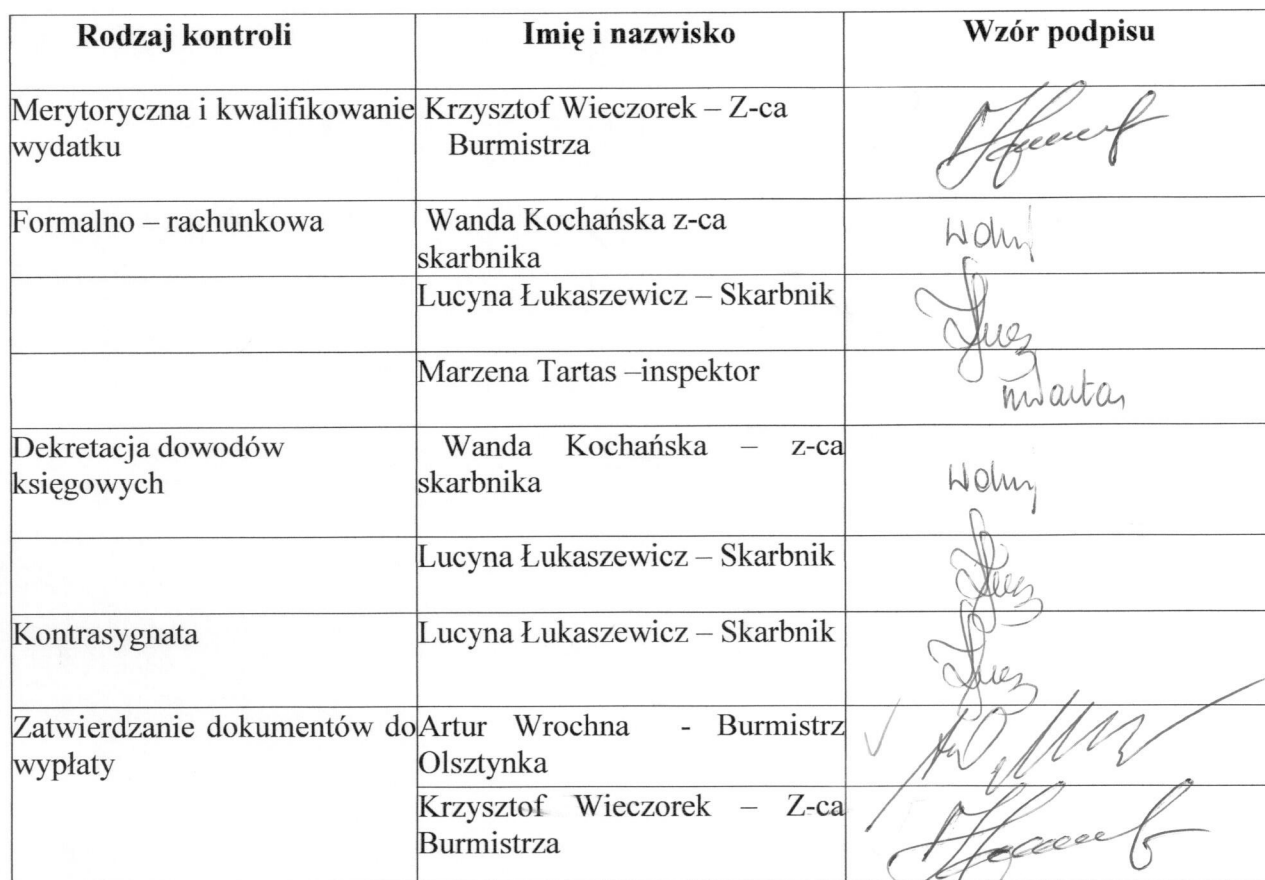 Rodzaj kontroli Imię i nazwisko Wzór podpisu
Merytoryczna i kwalifikowanie Krzysztof Wieczorek – Z-ca
wydatku Burmistrza
Formalno – rachunkowa Wanda Kochańska z-ca
skarbnika
Lucyna Łukaszewicz – Skarbnik
Marzena Tartas –inspektor
Dekretacja dowodów Wanda Kochańska – z-ca
księgowych skarbnika
Lucyna Łukaszewicz – Skarbnik
Kontrasygnata Lucyna Łukaszewicz – Skarbnik
Zatwierdzanie dokumentów do Artur Wrochna - Burmistrz
wypłaty Olsztynka
Krzysztof Wieczorek – Z-ca
Burmistrza